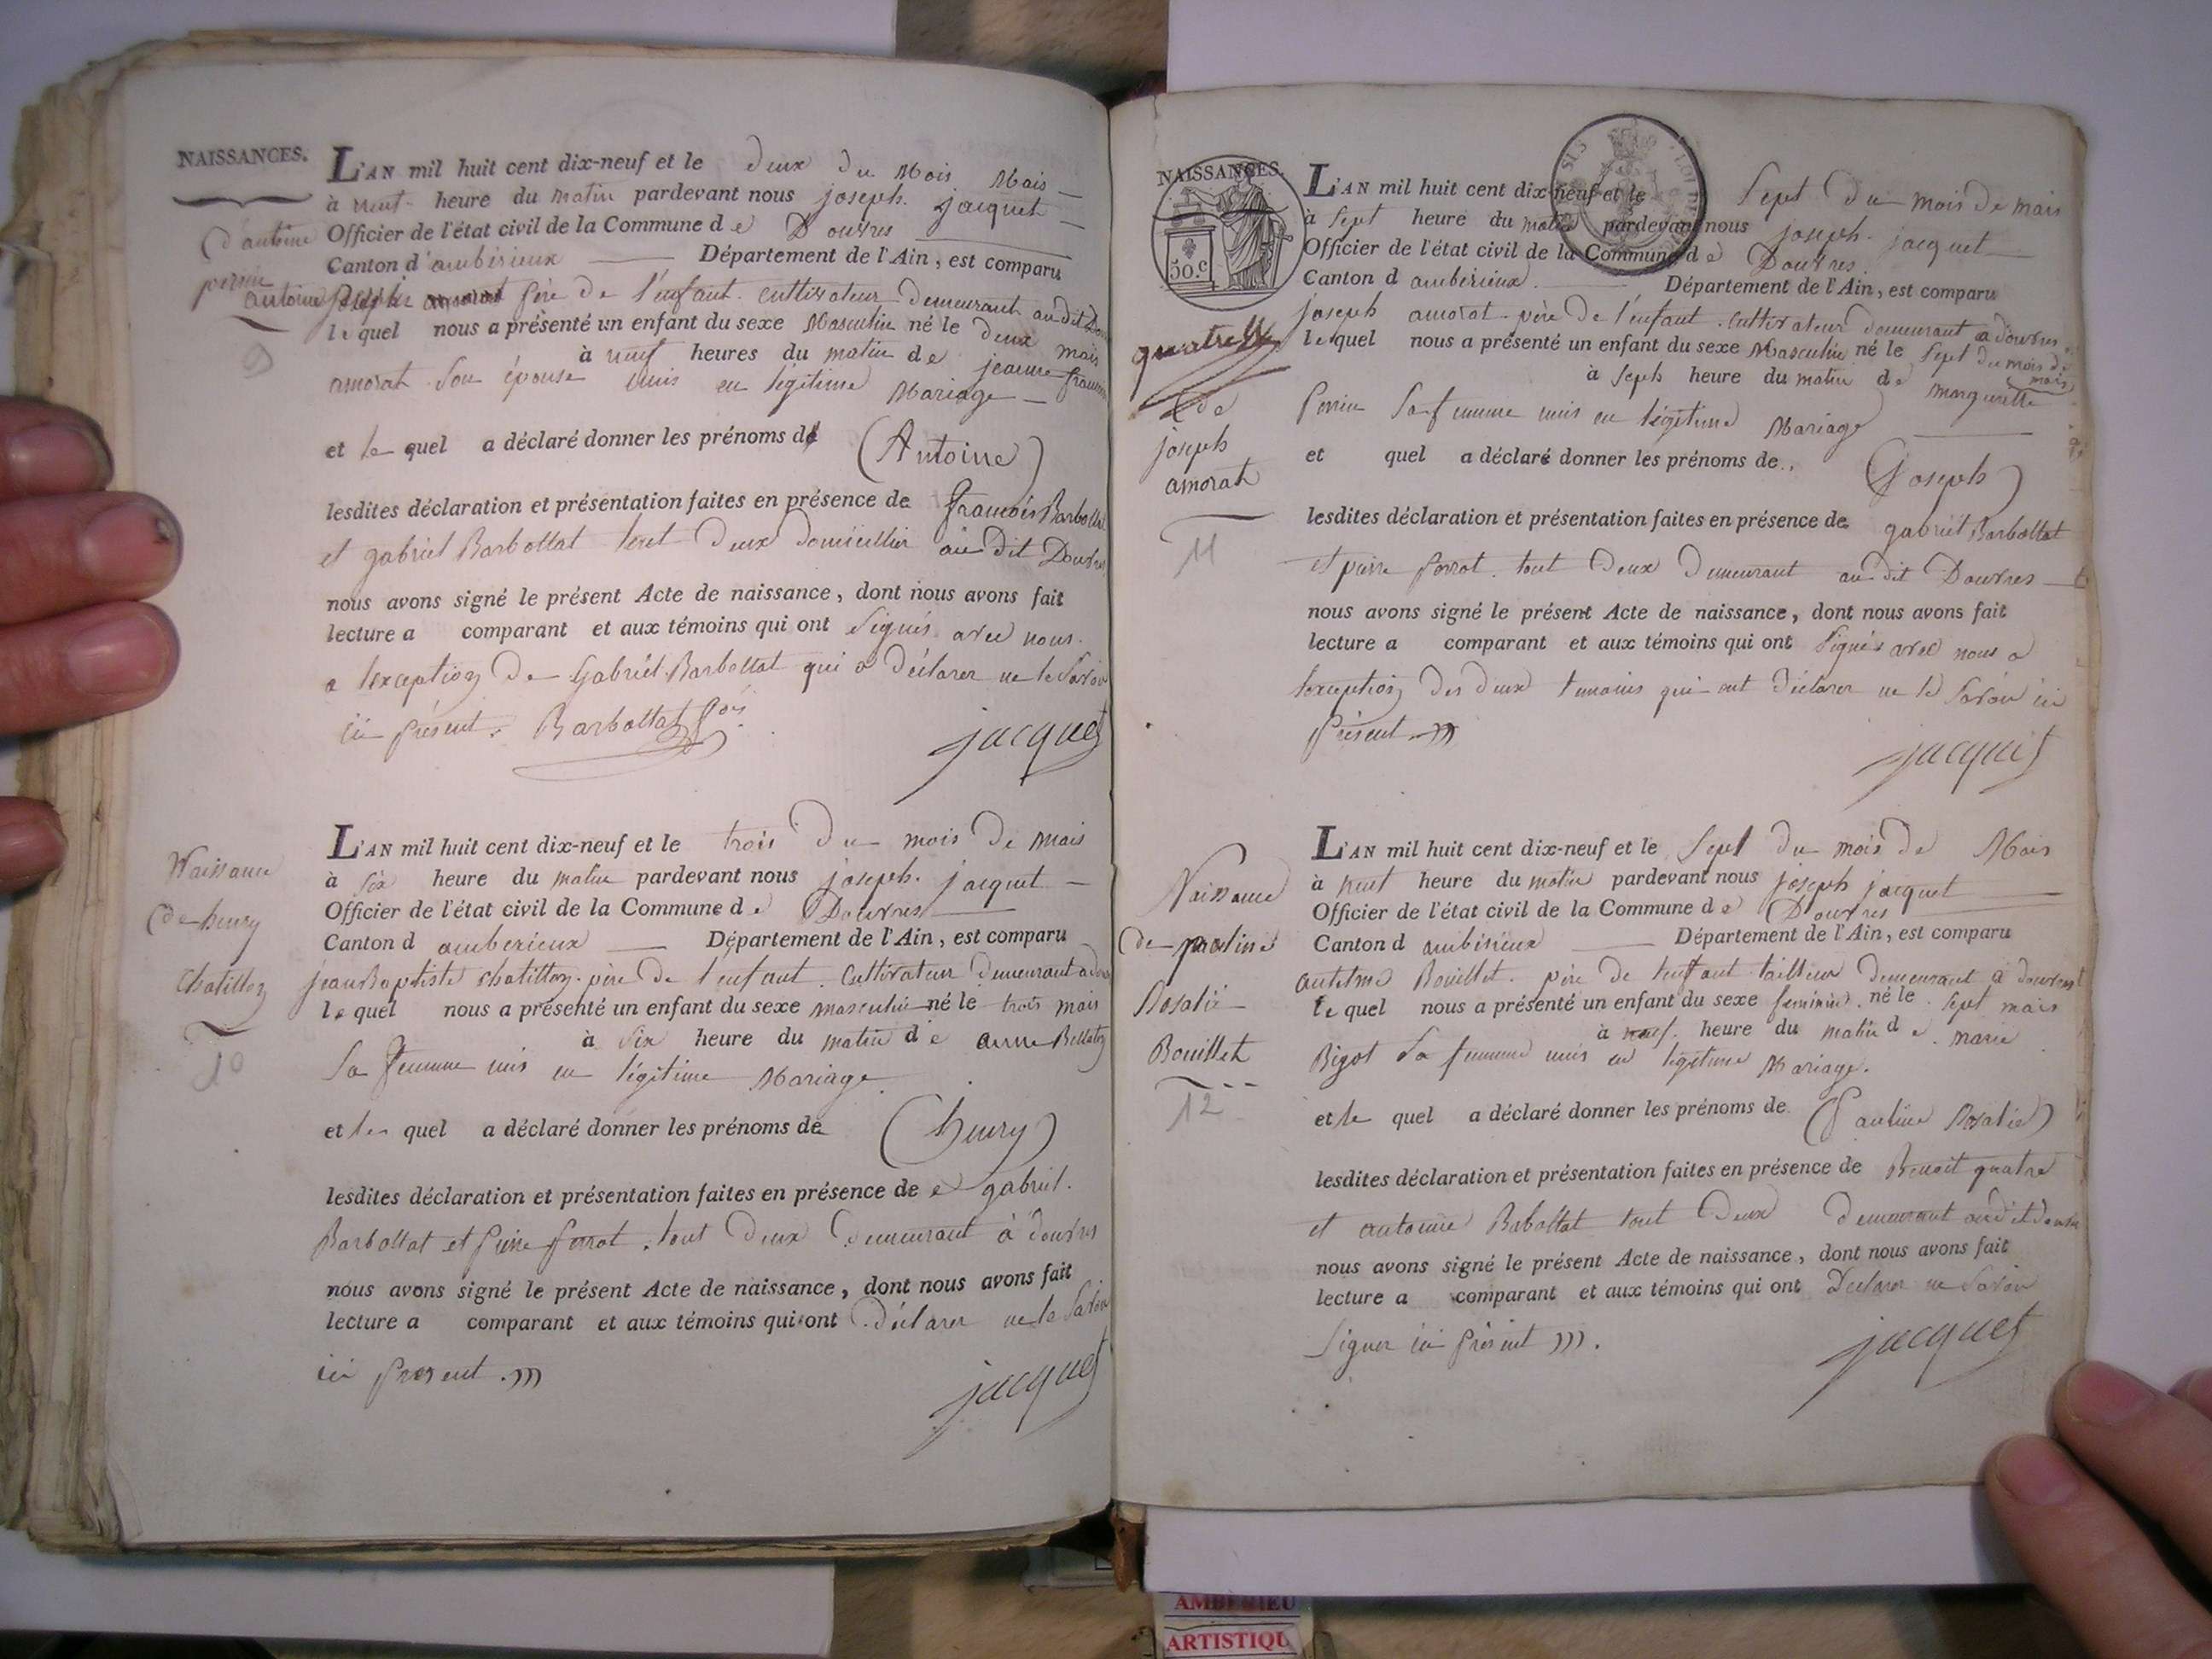 NAISSANCES.
L'AN mil huit cent dix-neuf et le deux du Mois Mais
à neuf heure du matin pardevant nous joseph. jacquet
Officier de l'état civil de la Commune de Douvres
Canton d'amberieux Département de l'Ain, est comparu
d'antoine
perrin
antoine père de l'enfant. cultivateur demeurant audit
le quel nous a présenté un enfant du sexe Masculin né le deux mais
à neuf heures du matin de jeanne
amorat son épouse unis en légitime Mariage
9
et le quel a déclaré donner les prénoms de (Antoine)
lesdites déclaration et présentation faites en présence de françois Barbollat
et gabriel Barbollat tout deux domicillier au dit Douvres
nous avons signé le présent Acte de naissance, dont nous avons fait
lecture a comparant et aux témoins qui ont signés avec nous.
a lexception de Gabriel Barbollat qui a déclarer ne le Savoir
ici présent. Barbollat fois
jacquet
Naissance
de henry
Chatillon
10
L'AN mil huit cent dix-neuf et le trois du mois de mais
à six heure du matin pardevant nous joseph. jacquet
Officier de l'état civil de la Commune de Douvres
Canton d amberieux Département de l'Ain, est comparu
jean Baptiste chatillon. père de l'enfant. Cultivateur demeurant a
le quel nous a présenté un enfant du sexe masculin né le trois mais
à six heure du matin de anne
Sa femme unis en légitime Mariage
et le quel a déclaré donner les prénoms de (henry)
lesdites déclaration et présentation faites en présence de gabriel.
Barbollat et pierre ferrot. tout deux demeurant à douvres
nous avons signé le présent Acte de naissance, dont nous avons fait
lecture a comparant et aux témoins qui ont déclarer ne le Savoir
ici present.
jacquet
NAISSANCES.
50.c
quatre
de
joseph
amorat
11
L'AN mil huit cent dix-neuf et le Sept du mois de mais
à Sept heure du matin pardevant nous joseph. jacquet
Officier de l'état civil de la Commune de Douvres
Canton d amberieux. Département de l'Ain, est comparu
joseph amorat. père de l'enfant. cultivateur demeurant a douvres
le quel nous a présenté un enfant du sexe Masculin né le Sept du mois de mais
à Sept heure du matin de marguerite
perrin Sa femme unis en légitime Mariage
et quel a déclaré donner les prénoms de (Joseph)
lesdites déclaration et présentation faites en présence de gabriel Barbollat
et pierre ferrot. tout deux demeurant au dit Douvres
nous avons signé le présent Acte de naissance, dont nous avons fait
lecture a comparant et aux témoins qui ont Signés avec nous a
lexception des deux temoins qui ont déclarer ne le Savoir ici
présent
jacquet
Naissance
de pauline
Rosalie
Bouillet
12
L'AN mil huit cent dix-neuf et le Sept du mois de Mais
à neuf heure du matin pardevant nous joseph jacquet
Officier de l'état civil de la Commune de Douvres
Canton d amberieux Département de l'Ain, est comparu
antelme Bouillet. père de lenfant tailleur demeurant à douvres
le quel nous a présenté un enfant du sexe feminin. né le Sept mais
à neuf. heure du matin de marie
Bigot Sa femme unis en légitime Mariage.
et le quel a déclaré donner les prénoms de (Pauline Rosalie)
lesdites déclaration et présentation faites en présence de Benoit quatre
et antoine Baballat tout deux demeurant audit douvres
nous avons signé le présent Acte de naissance, dont nous avons fait
lecture a comparant et aux témoins qui ont Declarer ne Savoir
Signer ici présent.
jacquet
AMBERIEU
ARTISTIQU